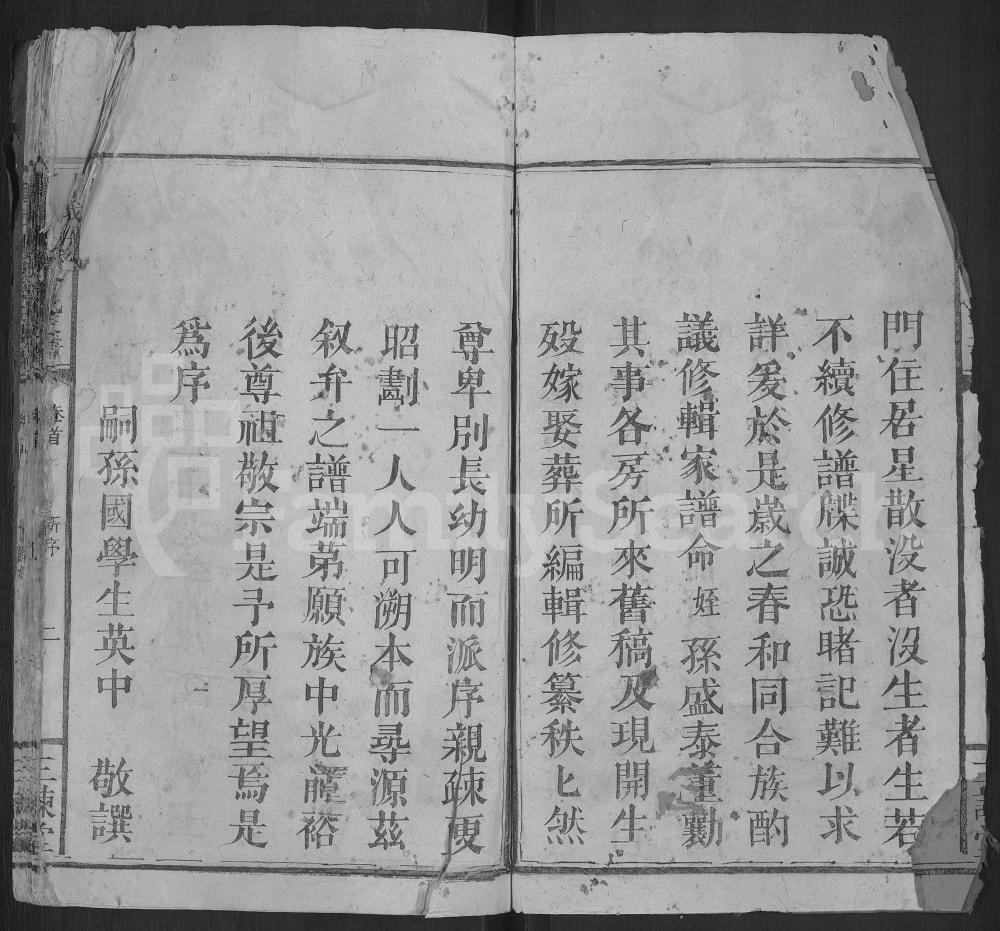 門住居星散没者沒生者生若
不續修譜牒誠恐睹記難以求
詳爰於是歲之春和同合族酌
議修輯家譜命姪孫盛泰董勷
其事各房所來舊稿及現開生
殁嫁娶葬所編輯修纂秩匕然
尊卑別長幼明而派序親疎更
昭劃一人人可溯本而尋源茲
叙弁之譜端苐願族中光前裕
後尊祖敬宗是予所厚望焉是
為序
嗣孫國學生英中 敬譔
卷首 新序 二
FamilySearch